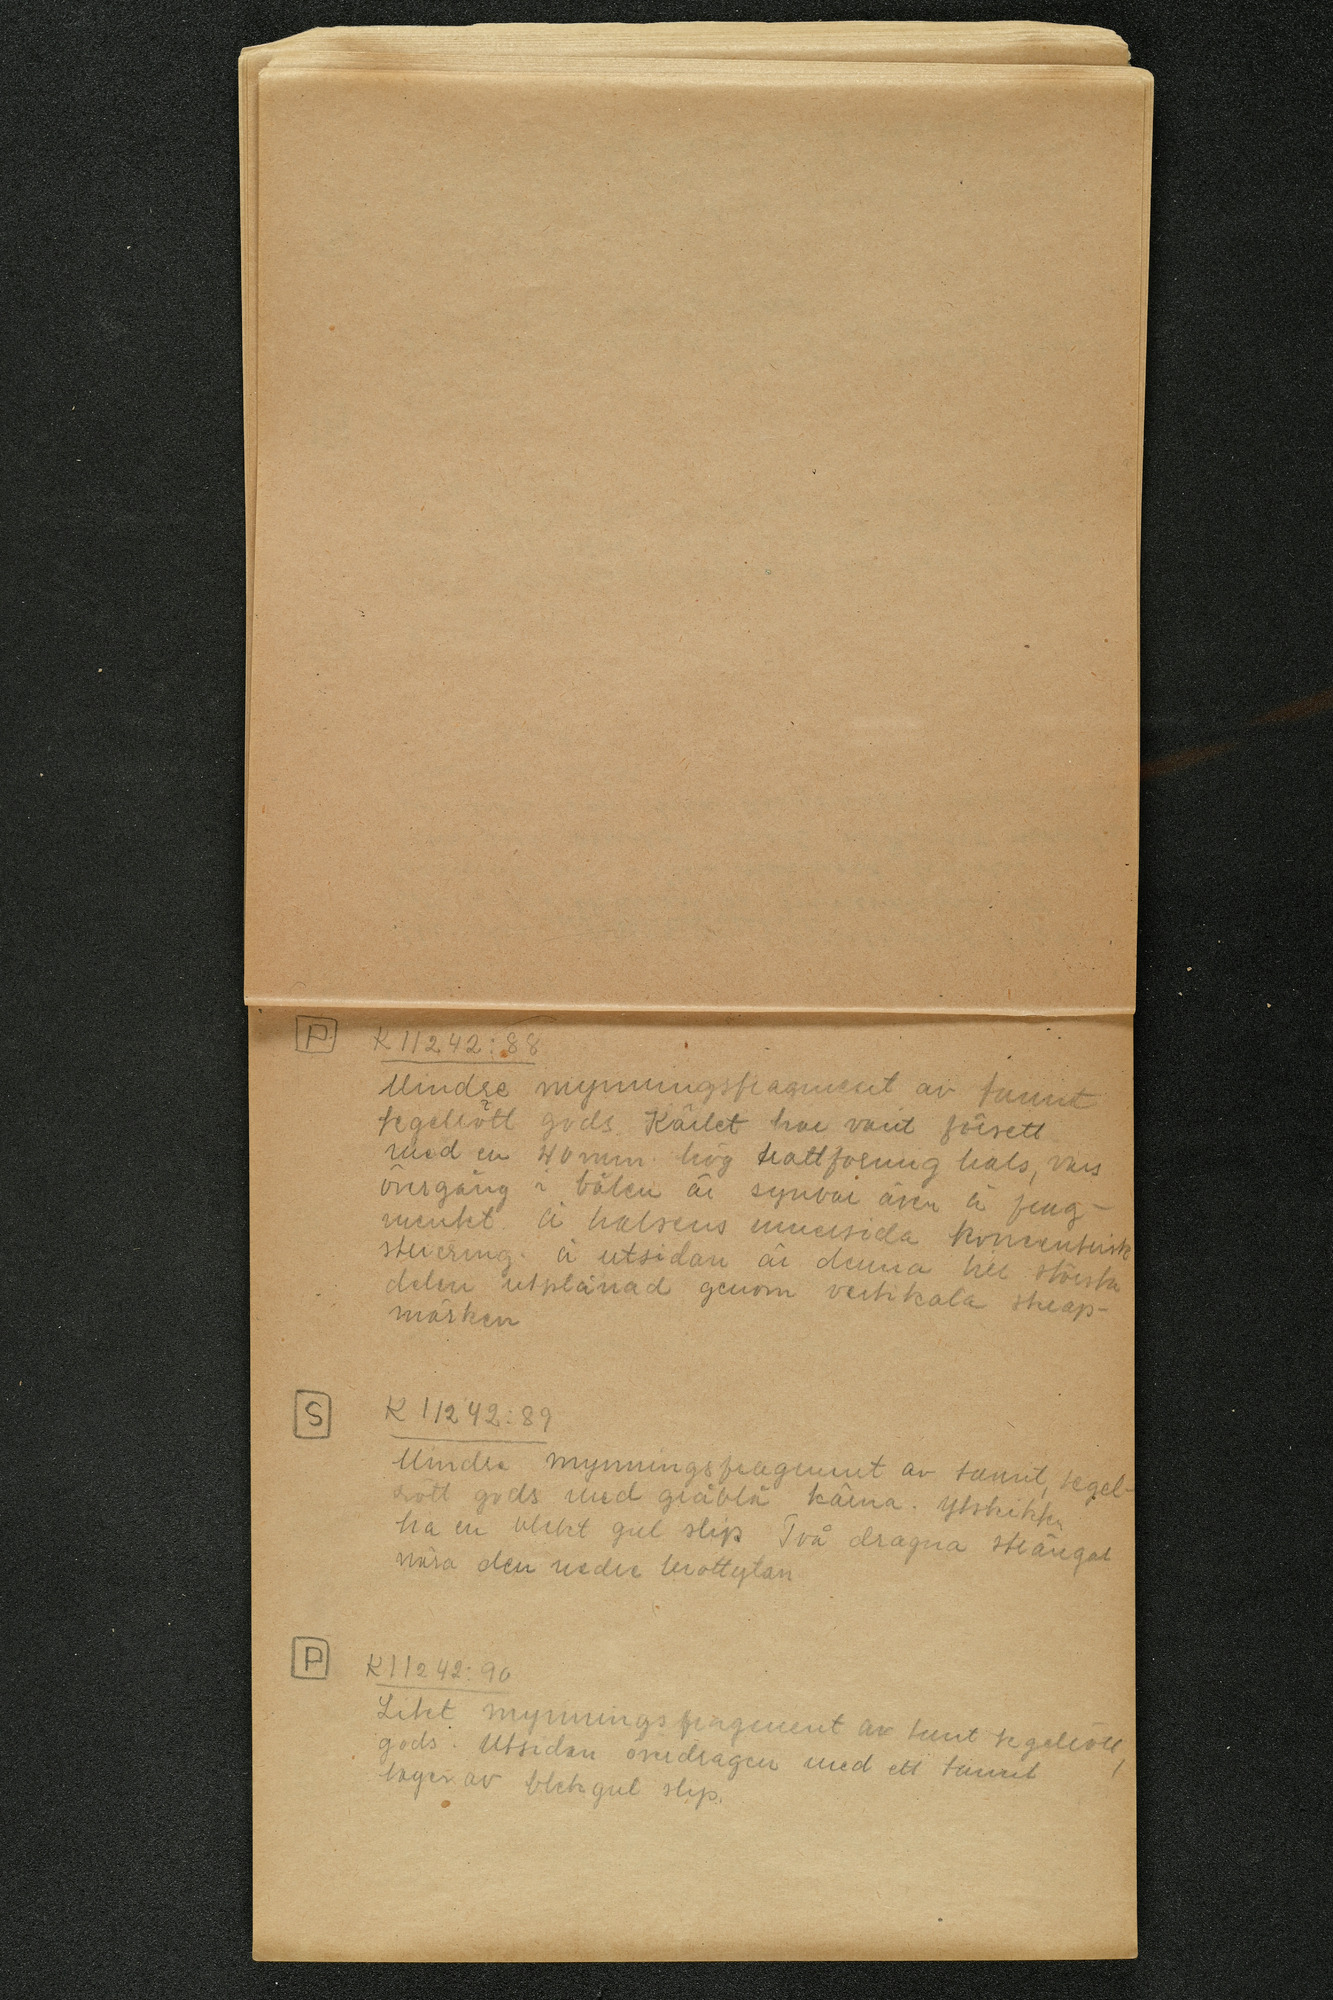 P. K 11242:88
Mindre mynningsfragment av tunnt
tegelrött gods. Kärlet har varit försett
med en 40 mm. hög trattformig hals, vars
övergång i bålen är synbar även å frag-
mentet. Å halsens innersida koncentrisk
striering. Å utsidan är denna till största
delen utplånad genom vertikala skrap-
märken
S K 11242:89
Mindre mynningsfragment av tunnt, tegel-
rött gods med gråblå kärna. Ytskikten
ha en blekt gul slip Två dragna strängar
nära den nedre brottytan
P K 11242:90
Litet mynningsfragment av tunt tegelrött,
gods. Utsidan överdragen med ett tunnt
lager av blekgul slip.